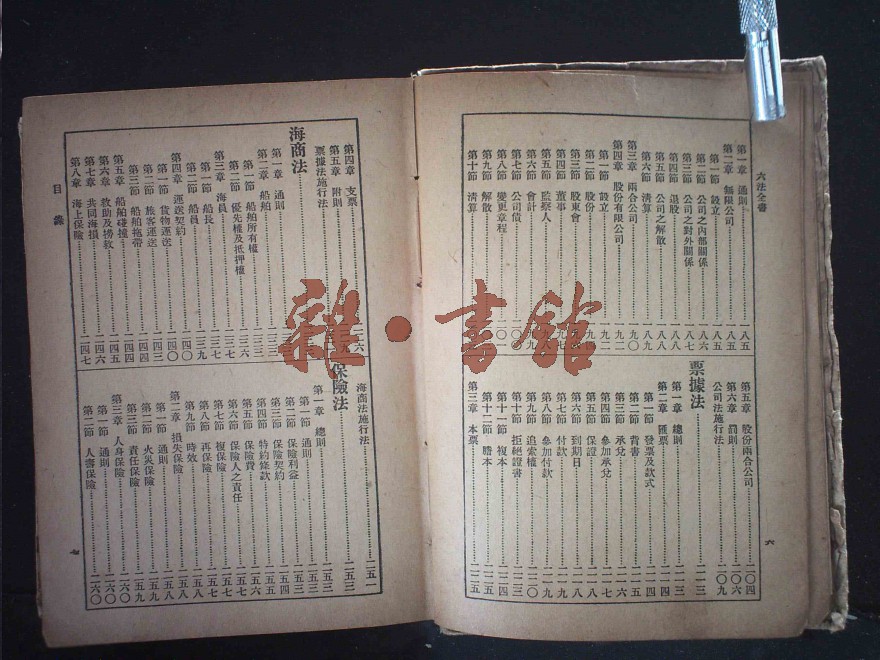 六法全書
第一章 通則 八五
第二章 無限公司 八五
第一節 設立 八五
第二節 公司之內部關係 八六
第三節 公司之對外關係 八七
第四節 退股 八八
第五節 公司之解散 八八
第六節 清算 八九
第三章 兩合公司 九〇
第四章 股份有限公司
第一節 設立
第二節 股份
第三節 股東會
第四節 董事
第五節 監察人
第六節 會計
第七節 公司債
第八節 變更章程
第九節 解散
第十節 清算
第五章 股份兩合公司 一〇四
第六章 罰則 一〇六
公司法施行法 一〇九
票據法
第一章 總則 一一三
第二章 匯票 一一四
第一節 發票及款式 一一四
第二節 背書 一一五
第三節 承兌 一一六
第四節 參加承兌 一一七
第五節 保證 一一八
第六節 到期日 一一八
第七節 付款 一一九
第八節 參加付款 一一九
第九節 追索權 一二〇
第十節 拒絕證書 一二三
第十一節 複本 一二四
第十二節 謄本 一二五
第三章 本票 一二五
六
第四章 支票
第五章 附則
票據法施行法
海商法
第一章 通則
第二章 船舶
第一節 船舶所有權
第二節 優先權及抵押權
第三章 海員 一三七
第一節 船長 一三七
第二節 船員 一三九
第四章 運送契約 一四〇
第一節 貨物運送 一四〇
第二節 旅客運送 一四三
第三節 船舶拖帶 一四四
第五章 船舶碰撞 一四四
第六章 救助及撈救 一四五
第七章 共同海損 一四六
第八章 海上保險 一四七
海商法施行法 一五一
保險法
第一章 總則 一五三
第一節 通則 一五三
第二節 保險利益 一五三
第三節 保險契約 一五四
第四節 特約條款 一五五
第五節 保險費 一五六
第六節 保險人之責任 一五七
第七節 複保險 一五七
第八節 再保險 一五七
第九節 時效 一五八
第二章 損失保險 一五八
第一節 通則 一五八
第二節 火災保險 一五九
第三節 責任保險 一五九
第三章 人身保險 一六〇
第一節 通則 一六〇
第二節 人壽保險 一六〇
目錄
七
雜·書館